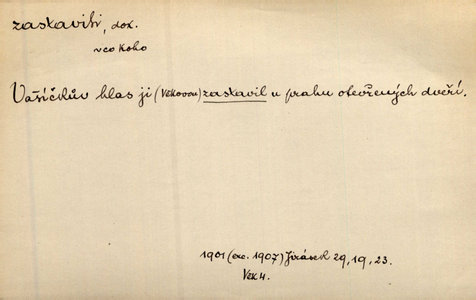 zastaviti, dok.
v co koho
Vašíčkův hlas ji (Věkovou) zastavil u prahu otevřených dveří.
1901 (ac. 1907) Jirásek 29, 19, 23.
Věk 4.